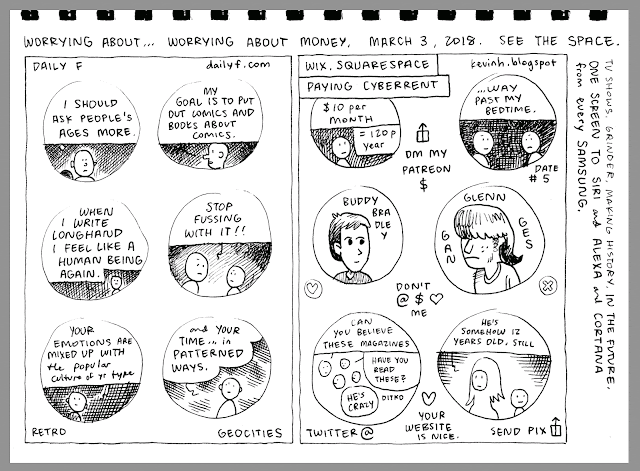 WORRYING ABOUT... WORRYING ABOUT MONEY. MARCH 3, 2018. SEE THE SPACE.
DAILY F
dailyf.com
I SHOULD
ASK PEOPLE'S
AGES MORE.
MY
GOAL IS TO PUT
OUT COMICS AND
BOOKS ABOUT
COMICS.
WHEN
I WRITE
LONGHAND
I FEEL LIKE A
HUMAN BEING
AGAIN.
STOP
FUSSING
WITH IT!!
YOUR
EMOTIONS ARE
MIXED UP WITH
the popular
culture of yr type
and YOUR
TIME... in
PATTERNED
WAYS.
RETRO
GEOCITIES
WIX. SQUARESPACE
kevinh.blogspot
PAYING CYBERRENT
$10 per
MONTH
= 120 p
year
...WAY
PAST MY
BEDTIME.
DM MY
PATREON
$
DATE
#5
BUDDY
BRA
DLE
Y
GLENN
GAN
GES
DON'T
@ $ ♡
ME
CAN
YOU BELIEVE
THESE MAGAZINES
HAVE YOU
READ
THESE?
HE'S
CRAZY
DITKO
HE'S
SOMEHOW 12
YEARS OLD, STILL
YOUR
WEBSITE
IS NICE.
TWITTER @
SEND PIX
TV SHOWS, GRINDER, MAKING HISTORY. IN THE FUTURE,
ONE SCREEN TO SIRI and ALEXA and CORTANA
from every SAMSUNG.